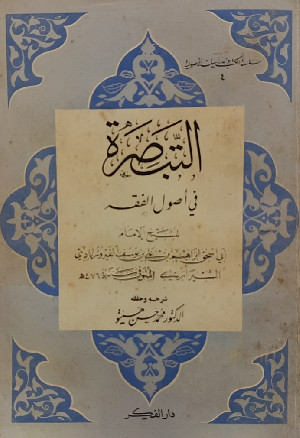 ٤
التبصرة
في أصول الفقه
للشيخ الإمام
أبي إسحق إبراهيم بن علي بن يوسف الفيروزآبادي
الشيرازي المتوفى سنة ٤٧٦ هـ
شرحه وحققه
الدكتور محمد حسن هيتو
دار الفكر